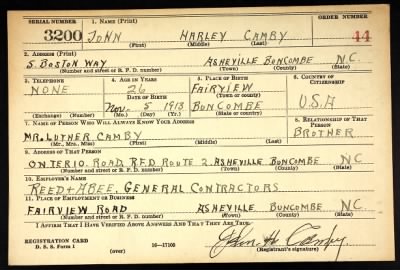 SERIAL NUMBER 1. NAME (Print) ORDER NUMBER
3200 JOHN HARLEY CAMBY 44
(First) (Middle) (Last)
2. ADDRESS (Print)
5 BOSTON WAY ASHEVILLE BUNCOMBE N.C.
(Number and street or R. F. D. number) (Town) (County) (State)
3. TELEPHONE 4. AGE IN YEARS 5. PLACE OF BIRTH 6. COUNTRY OF CITIZENSHIP
NONE 26 FAIRVIEW
DATE OF BIRTH (Town or county)
NOV. 5 1913 BUNCOMBE U.S.A
(Exchange) (Number) (Mo.) (Day) (Yr.) (State or country)
7. NAME OF PERSON WHO WILL ALWAYS KNOW YOUR ADDRESS 8. RELATIONSHIP OF THAT PERSON
MR. LUTHER CAMBY BROTHER
(Mr., Mrs., Miss) (First) (Middle) (Last)
9. ADDRESS OF THAT PERSON
ONTERIO ROAD, R.F.D. ROUTE 2. ASHEVILLE BUNCOMBE N.C
(Number and street or R. F. D. number) (Town) (County) (State)
10. EMPLOYER'S NAME
REED + ABEE, GENERAL CONTRACTORS
11. PLACE OF EMPLOYMENT OR BUSINESS
FAIRVIEW ROAD ASHEVILLE BUNCOMBE N.C.
(Number and street or R. F. D. number) (Town) (County) (State)
I AFFIRM THAT I HAVE VERIFIED ABOVE ANSWERS AND THAT THEY ARE TRUE.
REGISTRATION CARD
D. S. S. Form 1 (over) 16—17105 John H. Camby
(Registrant's signature)